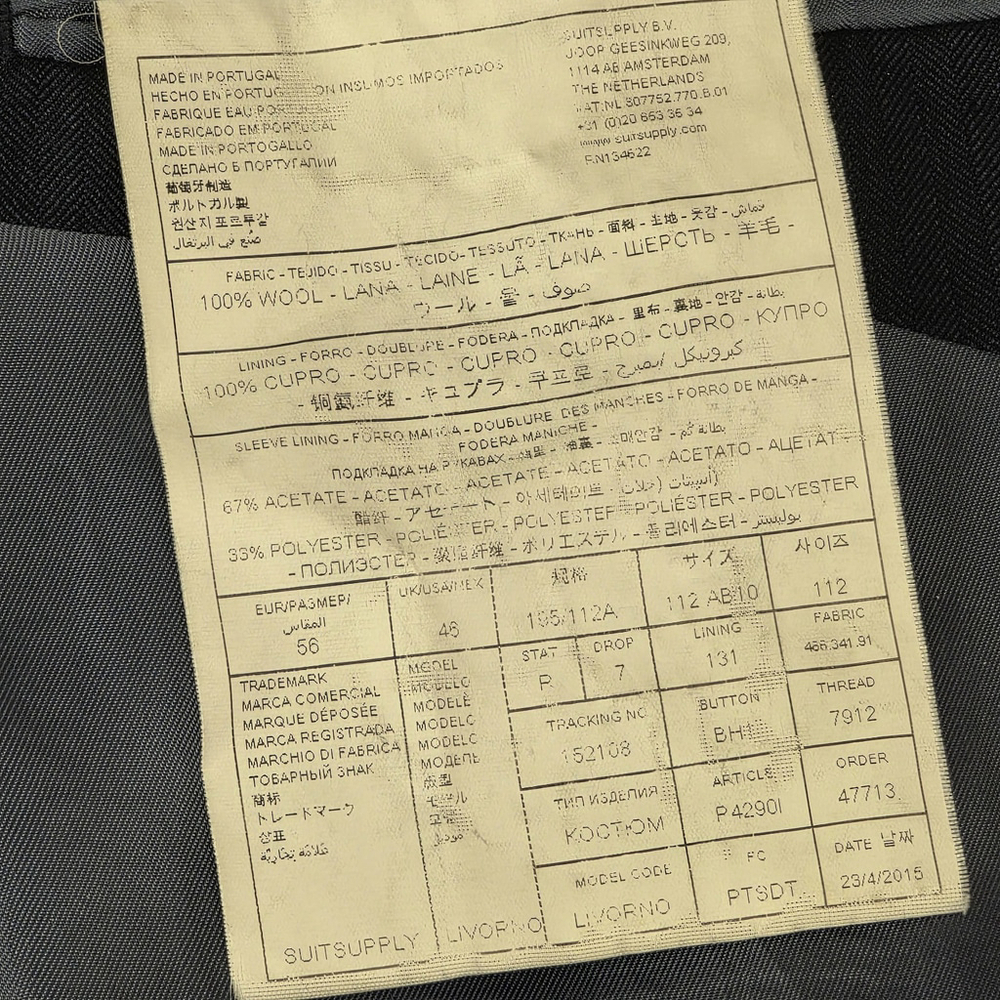 MADE IN PORTUGAL
HECHO EN PORTUGAL CON INSUMOS IMPORTADOS
FABRIQUE EAU PORTUGAL
FABRICADO EM PORTUGAL
MADE IN PORTOGALLO
СДЕЛАНО В ПОРТУГАЛИИ
葡萄牙制造
ポルトガル製
원산지 포르투갈
صنع في البرتغال
SUITSUPPLY B.V.
JOOP GEESINKWEG 209,
1114 AB AMSTERDAM
THE NETHERLANDS
VAT:NL 807752.770.B.01
+31 (0)20 653 35 34
www.suitsupply.com
RN134622
FABRIC - TEJIDO - TISSU - TECIDO - TESSUTO - ТКАНЬ - 面料 - 生地 - 옷감 - قماش
100% WOOL - LANA - LAINE - LÃ - LANA - ШЕРСТЬ - 羊毛 -
ウール - 울 - صوف
LINING - FORRO - DOUBLURE - FODERA - ПОДКЛАДКА - 里布 - 裏地 - 안감 - بطانة
100% CUPRO - CUPRO - CUPRO - CUPRO - CUPRO - КУПРО
- 铜氨纤维 - キュプラ - 쿠프로 -
SLEEVE LINING - FORRO MANGA - DOUBLURE DES MANCHES - FORRO DE MANGA -
FODERA MANICHE -
ПОДКЛАДКА НА РУКАВАХ - 袖里 - 袖裏 - 소매안감 - بطانة كم
67% ACETATE - ACETATO - ACETATE - ACETATO - ACETATO - АЦЕТАТ -
醋纤 - アセテート - 아세테이트 -
33% POLYESTER - POLIÉSTER - POLYESTER - POLIÉSTER - POLYESTER
- ПОЛИЭСТЕР - 聚酯纤维 - ポリエステル - 폴리에스터 - بوليستر
EUR/РАЗМЕР/
المقاس
56
UK/USA/MEX
46
规格
195/112A
サイズ
112 AB10
사이즈
112
STAT
R
DROP
7
LINING
131
FABRIC
466.341.91
TRADEMARK
MARCA COMERCIAL
MARQUE DÉPOSÉE
MARCA REGISTRADA
MARCHIO DI FABRICA
ТОВАРНЫЙ ЗНАК
商标
トレードマーク
상표
علامة تجارية
SUITSUPPLY
MODEL
MODELO
MODELÈ
MODELO
MODELO
МОДЕЛЬ
成型
モデル
모델
موديل
LIVORNO
TRACKING NO
152108
BUTTON
THREAD
7912
ТИП ИЗДЕЛИЯ
КОСТЮМ
ARTICLE
P4290I
ORDER
47713
MODEL CODE
LIVORNO
FC
PTSDT
DATE 날짜
23/4/2015